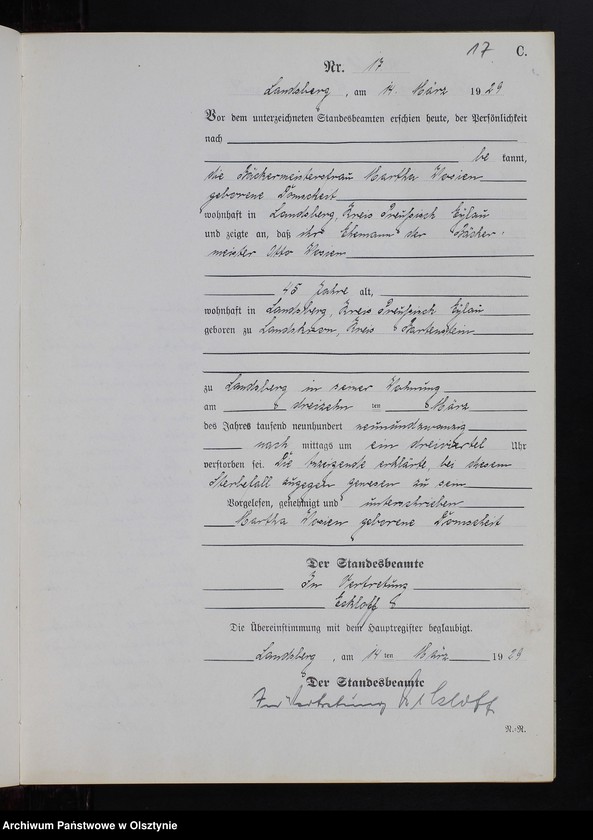 17 C.
Nr. 17
Landsberg, am 14. März 1929
Vor dem unterzeichneten Standesbeamten erschien heute, der Persönlichkeit
nach
be kannt,
die Bäckermeisterfrau Martha
geborene
wohnhaft in Landsberg, Kreis Preußisch Eylau
und zeigte an, daß ihr Ehemann der Bäcker-
meister Otto
45 Jahre alt,
wohnhaft in Landsberg, Kreis Preußisch Eylau
geboren zu Landskron, Kreis Bartenstein
zu Landsberg in seiner Wohnung
am dreizehn ten März
des Jahres tausend neunhundert neunundzwanzig
nach mittags um ein dreiviertel Uhr
verstorben sei. Die Anzeigende erklärte, bei diesem
Sterbefall zugegen gewesen zu sein
Vorgelesen, genehmigt und unterschrieben
Martha geborene
Der Standesbeamte
In Vertretung
Eckloff
Die Übereinstimmung mit dem Hauptregister beglaubigt.
Landsberg, am 14 ten März 1929
Der Standesbeamte
In Vertretung Eckloff
N.-R.
Archiwum Państwowe w Olsztynie